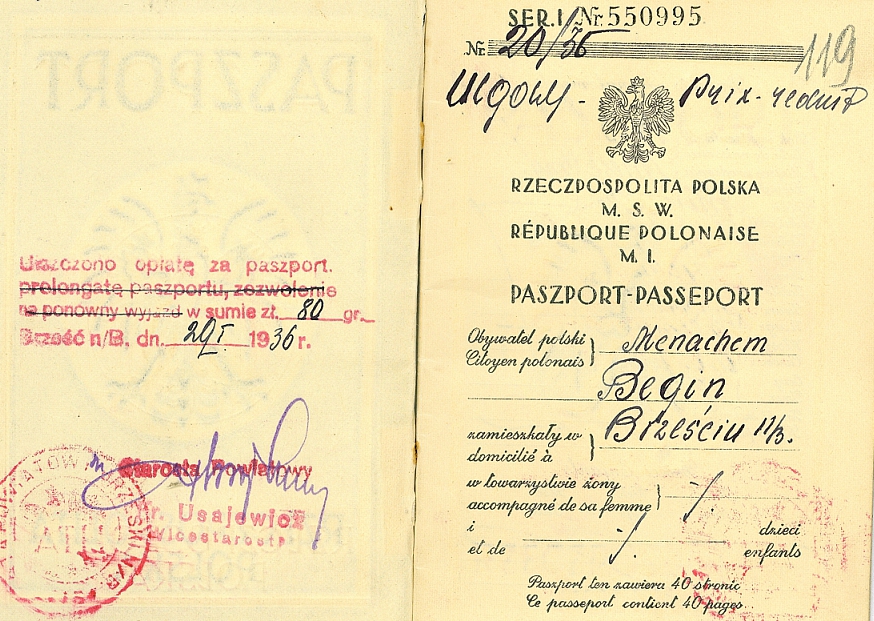 Uiszczono opłatę za paszport.
prolongatę paszportu, zezwolenie
na ponowny wyjazd w sumie zł. 80 gr.
Brześć n/B. dn. 29/I 1936 r.
Starosta Powiatowy
r. Usajewicz
Wicestarosta
SER. I Nr 550995
Nr. 20/36
119
Ulgowy - Prix-reduit
RZECZPOSPOLITA POLSKA
M. S. W.
RÉPUBLIQUE POLONAISE
M. I.
PASZPORT-PASSEPORT
Obywatel polski
Citoyen polonais } Menachem
Begin
zamieszkały w
domicilié à } Brześciu n/B.
w towarzystwie żony
accompagné de sa femme } -/-
i
et de -/- dzieci
enfants
Paszport ten zawiera 40 stronic
Ce passeport contient 40 pages